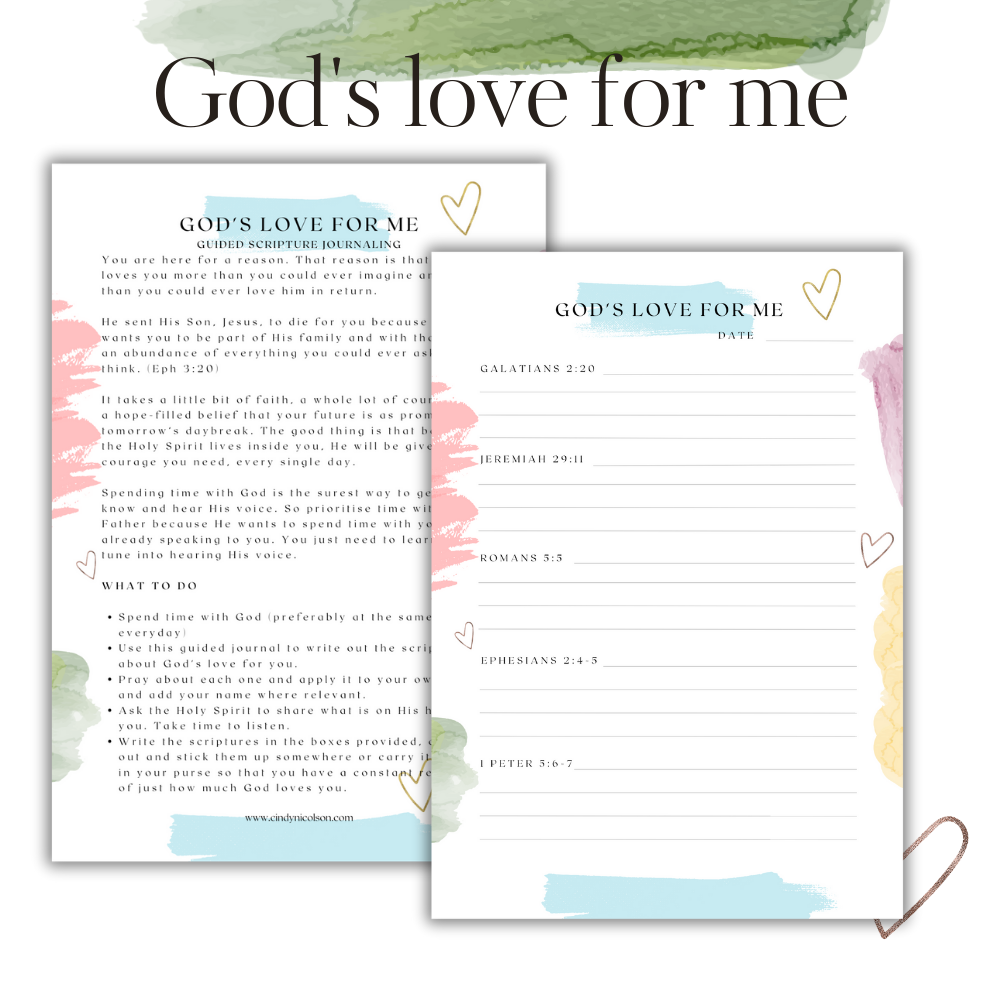 God's love for me
GOD'S LOVE FOR ME
GUIDED SCRIPTURE JOURNALING
You are here for a reason. That reason is that
loves you more than you could ever imagine
than you could ever love him in return.
He sent His Son, Jesus, to die for you because
wants you to be part of His family and with
an abundance of everything you could ever
think. (Eph 3:20)
It takes a little bit of faith, a whole lot of
a hope-filled belief that your future is as
tomorrow's daybreak. The good thing is that
the Holy Spirit lives inside you, He will be
courage you need, every single day.
Spending time with God is the surest way to
know and hear His voice. So prioritise time
Father because He wants to spend time with
already speaking to you. You just need to
tune into hearing His voice.
WHAT TO DO
• Spend time with God (preferably at the same
everyday)
• Use this guided journal to write out the
about God's love for you.
• Pray about each one and apply it to your
and add your name where relevant.
• Ask the Holy Spirit to share what is on His
you. Take time to listen.
• Write the scriptures in the boxes provided,
out and stick them up somewhere or carry
in your purse so that you have a constant
of just how much God loves you.
www.cindynicolson.com
GOD'S LOVE FOR ME
DATE
GALATIANS 2:20
JEREMIAH 29:11
ROMANS 5:5
EPHESIANS 2:4-5
1 PETER 5:6-7